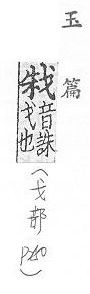 玉篇
音誅
戈也
(戈部 P240)